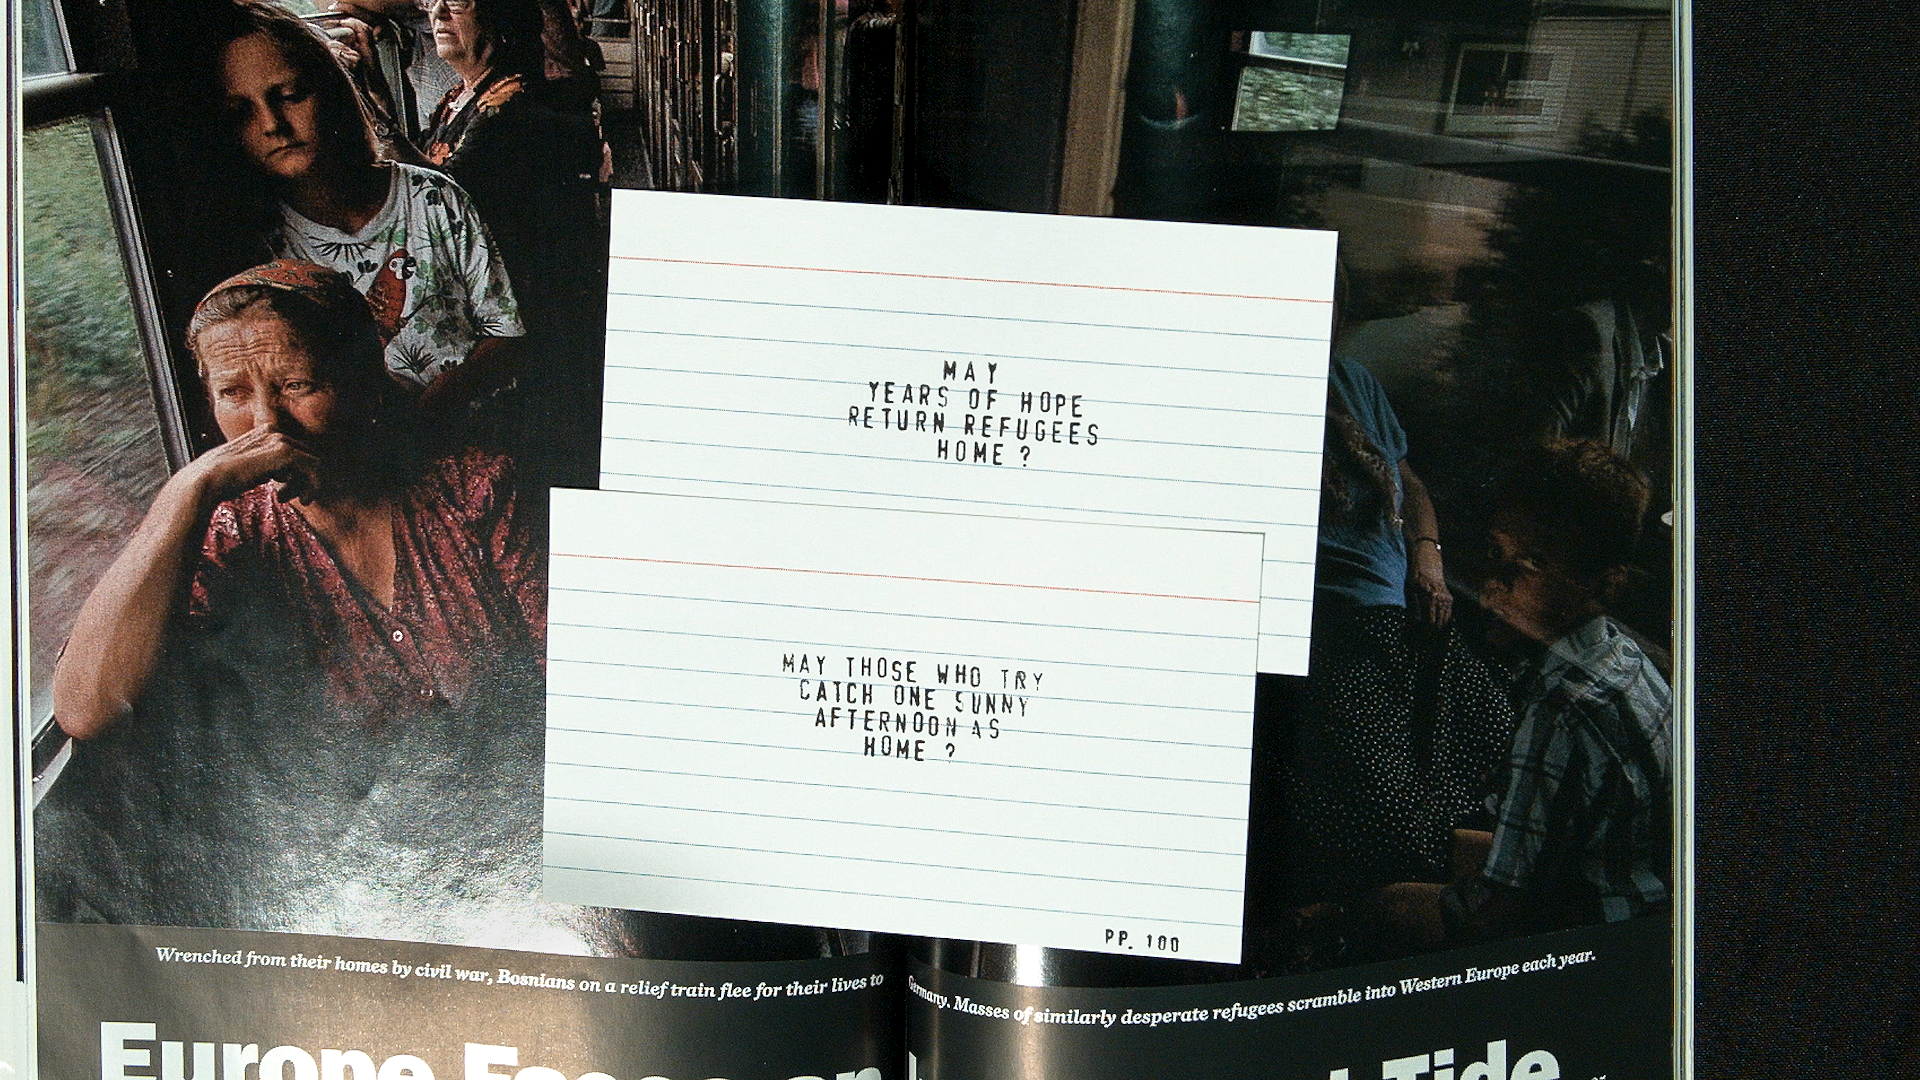 MAY
YEARS OF HOPE
RETURN REFUGEES
HOME ?
MAY THOSE WHO TRY
CATCH ONE SUNNY
AFTERNOON AS
HOME ?
PP. 100
Wrenched from their homes by civil war, Bosnians on a relief train flee for their lives to
Germany. Masses of similarly desperate refugees scramble into Western Europe each year.
Europe Tide